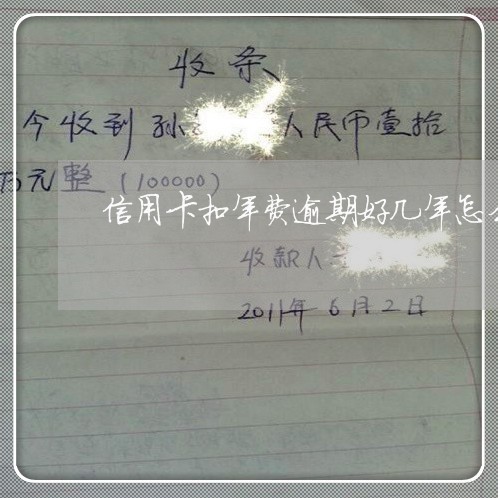 收条
今收到孙 人民币壹拾
万元整（100000）
信用卡扣年费逾期好几年怎
收款人
2011年6月2日